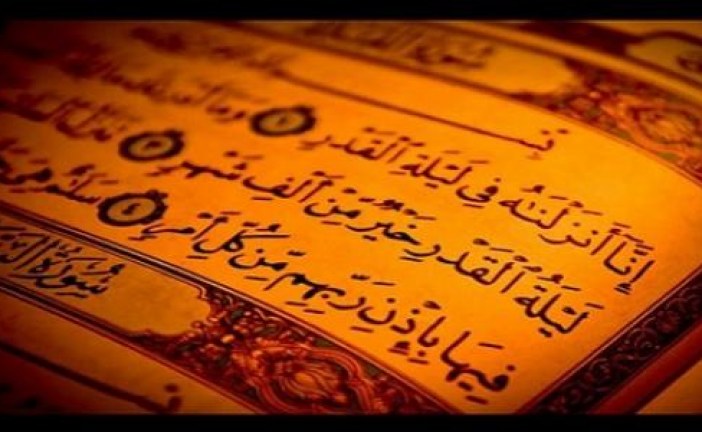 سورة القدر
إِنَّا أَنزَلْنَٰهُ فِى لَيْلَةِ ٱلْقَدْرِ ١ وَمَا
لَيْلَةُ ٱلْقَدْرِ خَيْرٌ مِّنْ أَلْفِ شَهْرٍ ٣ تَنَزَّلُ
فِيهَا بِإِذْنِ رَبِّهِم مِّن كُلِّ أَمْرٍ ٤ سَلَٰمٌ هِىَ
سُورَةُ